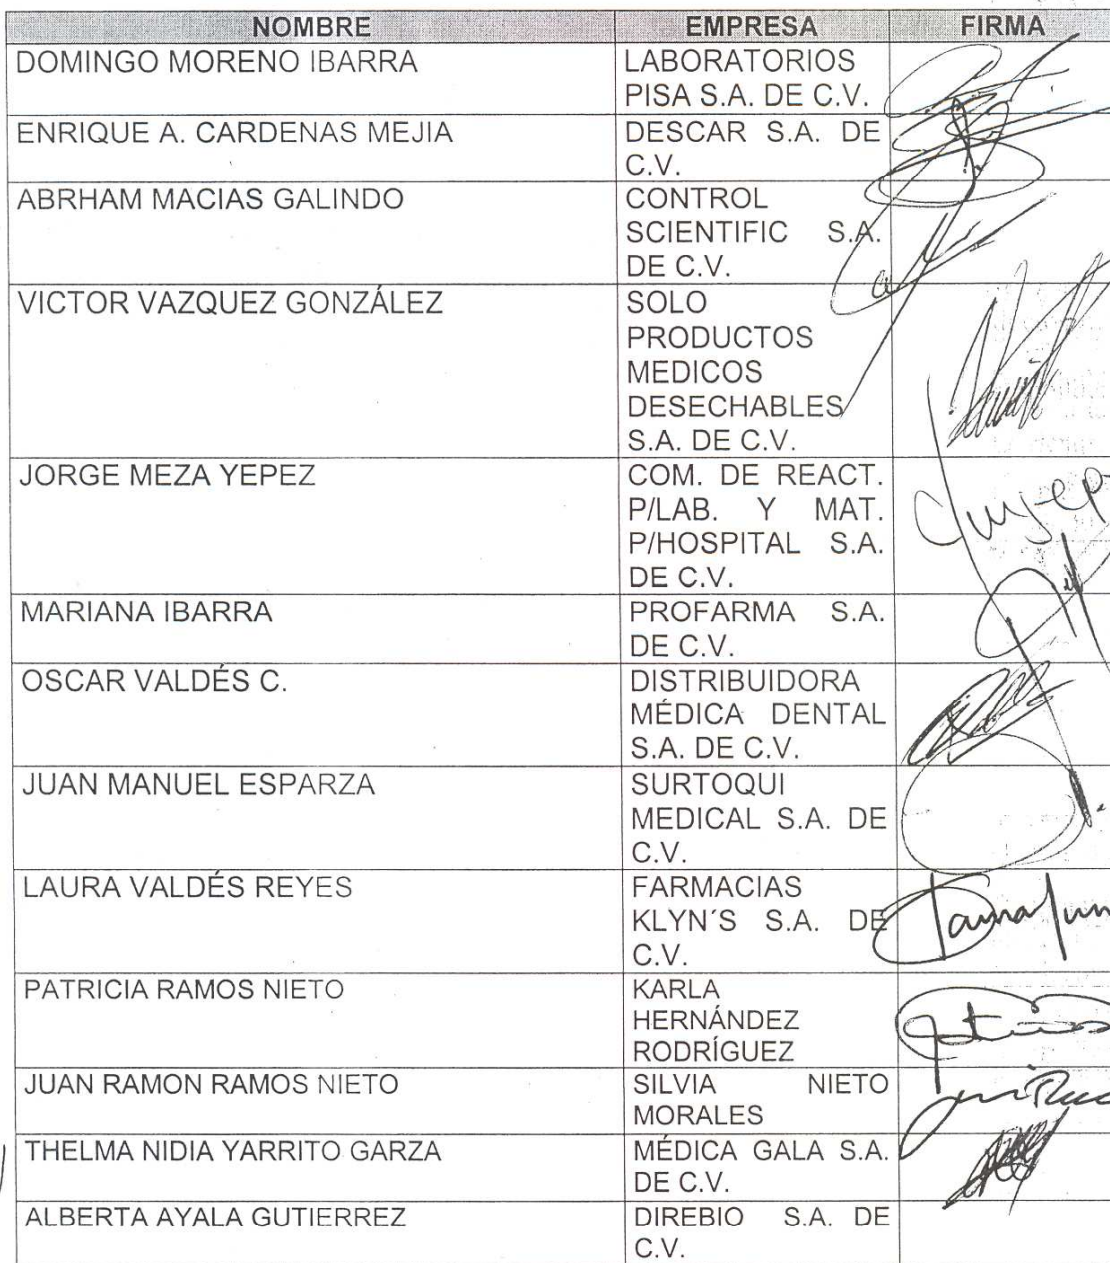 NOMBRE EMPRESA FIRMA
DOMINGO MORENO IBARRA LABORATORIOS
PISA S.A. DE C.V.
ENRIQUE A. CARDENAS MEJIA DESCAR S.A. DE
C.V.
ABRHAM MACIAS GALINDO CONTROL
SCIENTIFIC S.A.
DE C.V.
VICTOR VAZQUEZ GONZÁLEZ SOLO
PRODUCTOS
MEDICOS
DESECHABLES
S.A. DE C.V.
JORGE MEZA YEPEZ COM. DE REACT.
P/LAB. Y MAT.
P/HOSPITAL S.A.
DE C.V.
MARIANA IBARRA PROFARMA S.A.
DE C.V.
OSCAR VALDÉS C. DISTRIBUIDORA
MÉDICA DENTAL
S.A. DE C.V.
JUAN MANUEL ESPARZA SURTOQUI
MEDICAL S.A. DE
C.V.
LAURA VALDÉS REYES FARMACIAS
KLYN´S S.A. DE
C.V.
PATRICIA RAMOS NIETO KARLA
HERNÁNDEZ
RODRÍGUEZ
JUAN RAMON RAMOS NIETO SILVIA NIETO
MORALES
THELMA NIDIA YARRITO GARZA MÉDICA GALA S.A.
DE C.V.
ALBERTA AYALA GUTIERREZ DIREBIO S.A. DE
C.V.